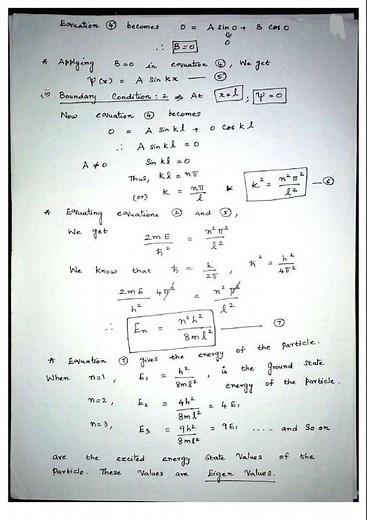 Equation ④ becomes 0 = A sin 0 + B cos 0
⇓
0
∴ B = 0
* Applying B = 0 in equation ④, We get
Ψ(x) = A sin kx — ⑤
(ii) Boundary Condition : 2 ⇒ At x = l ; Ψ = 0
Now equation ④ becomes
0 = A sin kl + 0 cos kl
∴ A sin kl = 0
A ≠ 0 sin kl = 0
Thus, kl = nπ
(or) k = nπ/l & k² = n²π²/l² — ⑥
* Equating equations ② and ③,
We get 2mE/ħ² = n²π²/l²
We know that ħ = h/2π , ħ² = h²/4π²
2mE/h² 4π² = n²π²/l²
∴ En = n²h²/8ml² — ⑦
* Equation ⑦ gives the energy of the particle.
When n=1, E₁ = h²/8ml² , is the ground state energy of the particle.
n=2, E₂ = 4h²/8ml² = 4E₁
n=3, E₃ = 9h²/8ml² = 9E₁ ..... and so on
are the excited energy state values of the
Particle. These Values are Eigen Values.